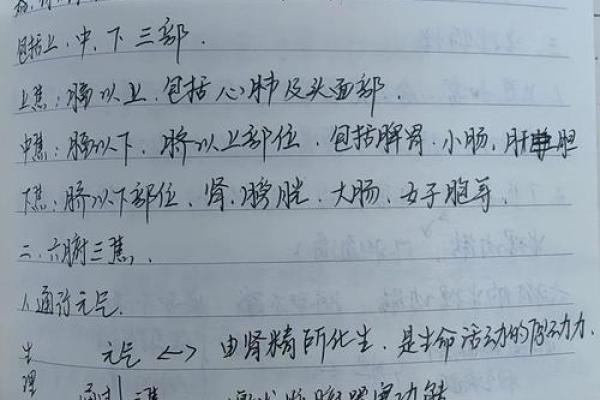 包括上、中、下三部.
上焦:膈以上.包括心肺及头面部.
中焦:膈以下.脐以上部位.包括脾胃.小肠.肝胆
下焦:脐以下部位.肾.膀胱.大肠.女子胞等.
二.六腑三焦.
1.通行元气.
生理
元气 <-> 由肾精所化生.是生命活动的原动力.
通过 三焦